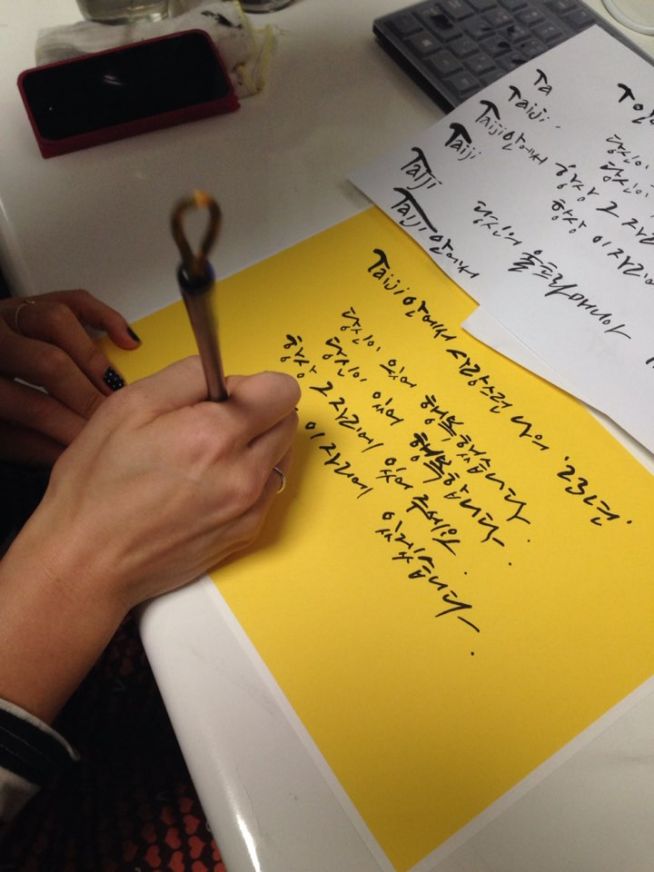 Ta
Taiji
Taiji안에서
Taiji
Taiji
Taiji안에서
당신이
당신이
항상 그 자리
항상 이 자리에
당신의 울트라매니아
Taiji 안에서 사랑스런 나의 '23년'
당신이 있어 행복했습니다.
당신이 있어 행복합니다.
항상 그 자리에 있어 주세요
이 자리에